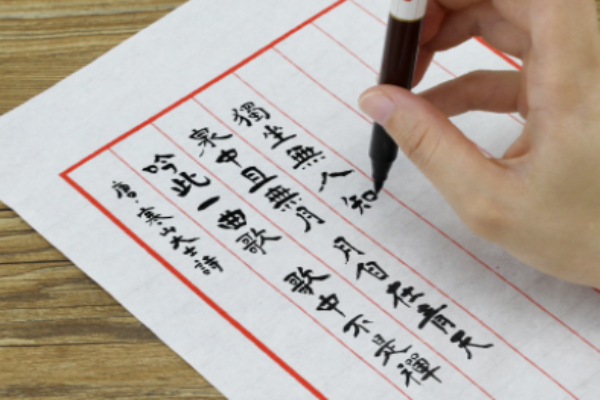 獨坐無人知
泉中且無月 月自在青天
吟此一曲歌 歌中不是禪
唐 寒山大士詩